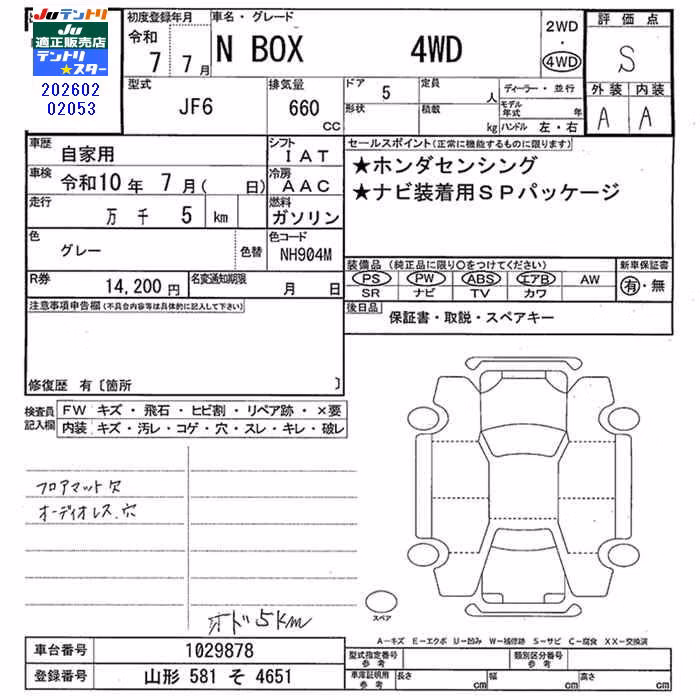 Juテントリ
JU
適正販売店
テントリ
★スター
202602
02053
初度登録年月
令和
7 7月
車名・グレード
N BOX 4WD
2WD
・
4WD
評価点
S
外装 内装
A A
型式
JF6
排気量
660
cc
ドア 5
形状
定員
人
積載
kg
ディーラー・並行
モデル年式 年
ハンドル 左・右
車歴 自家用
シフト IAT
車検 令和10年 7月( 日)
冷房 AAC
走行 万 千 5 km
燃料 ガソリン
色 グレー 色替
色コード NH904M
R券 14,200円
名変通知期限 月 日
セールスポイント(正常に機能するものに限ります)
★ホンダセンシング
★ナビ装着用SPパッケージ
装備品(純正品に限り○をつけてください)
PS PW ABS エアB AW
SR ナビ TV カワ
新車保証書
有・無
後日品 保証書・取説・スペアキー
注意事項申告欄(不具合内容等は具体的に記入して下さい)
修復歴 有〔箇所 〕
検査員記入欄
FW キズ・飛石・ヒビ割・リペア跡・×要
内装 キズ・汚レ・コゲ・穴・スレ・キレ・破レ
フロアマット欠
オーディオレス.穴
オド5km
スペア
A−キズ E−エクボ U−凹み W−補修跡 S−サビ C−腐食 XX−交換済
車台番号 1029878
登録番号 山形 581 そ 4651
型式指定番号 参考
類別区分番号 参考
車庫証明用 参考
長さ cm 幅 cm 高さ cm